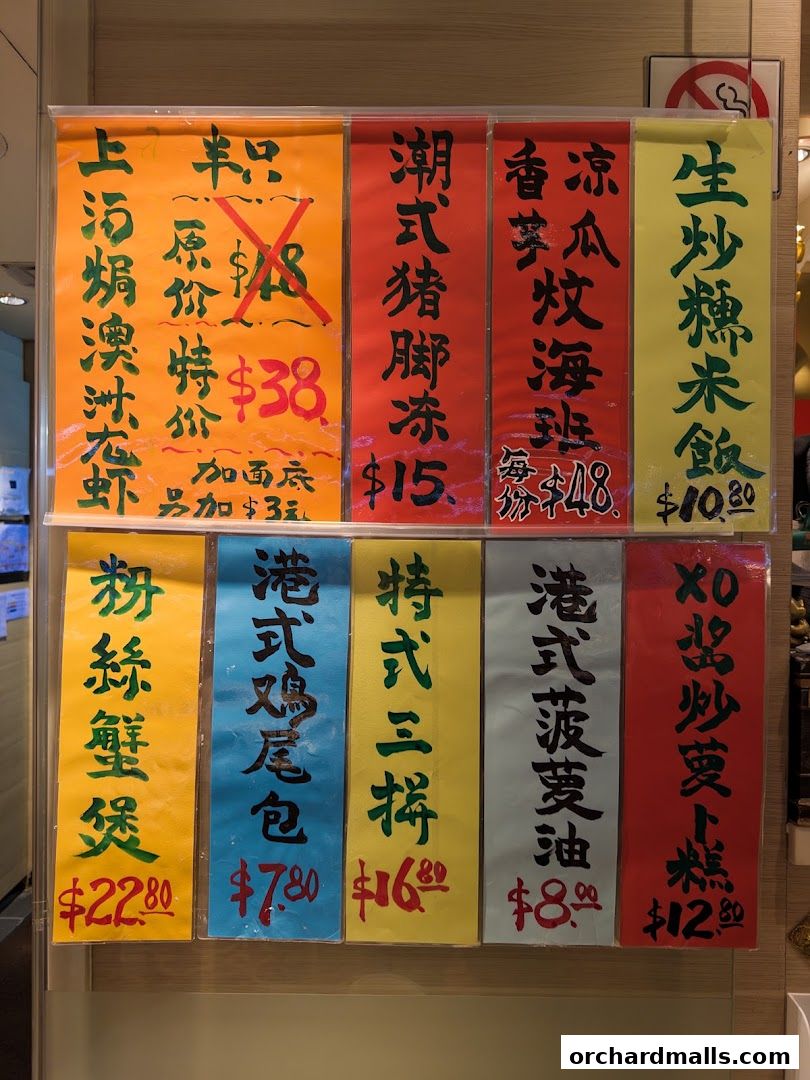 上汤焗澳洲龙虾
半只
原价 $48
特价 $38.
加面底
另加$3元
潮式猪脚冻
$15.
凉瓜
香芋
炆海班
每份 $48.
生炒糯米飯
$10.80
粉絲蟹煲
$22.80
港式鸡尾包
$7.80
特式三拼
$16.80
港式菠萝油
$8.00
XO酱炒萝卜糕
$12.80
orchardmalls.com